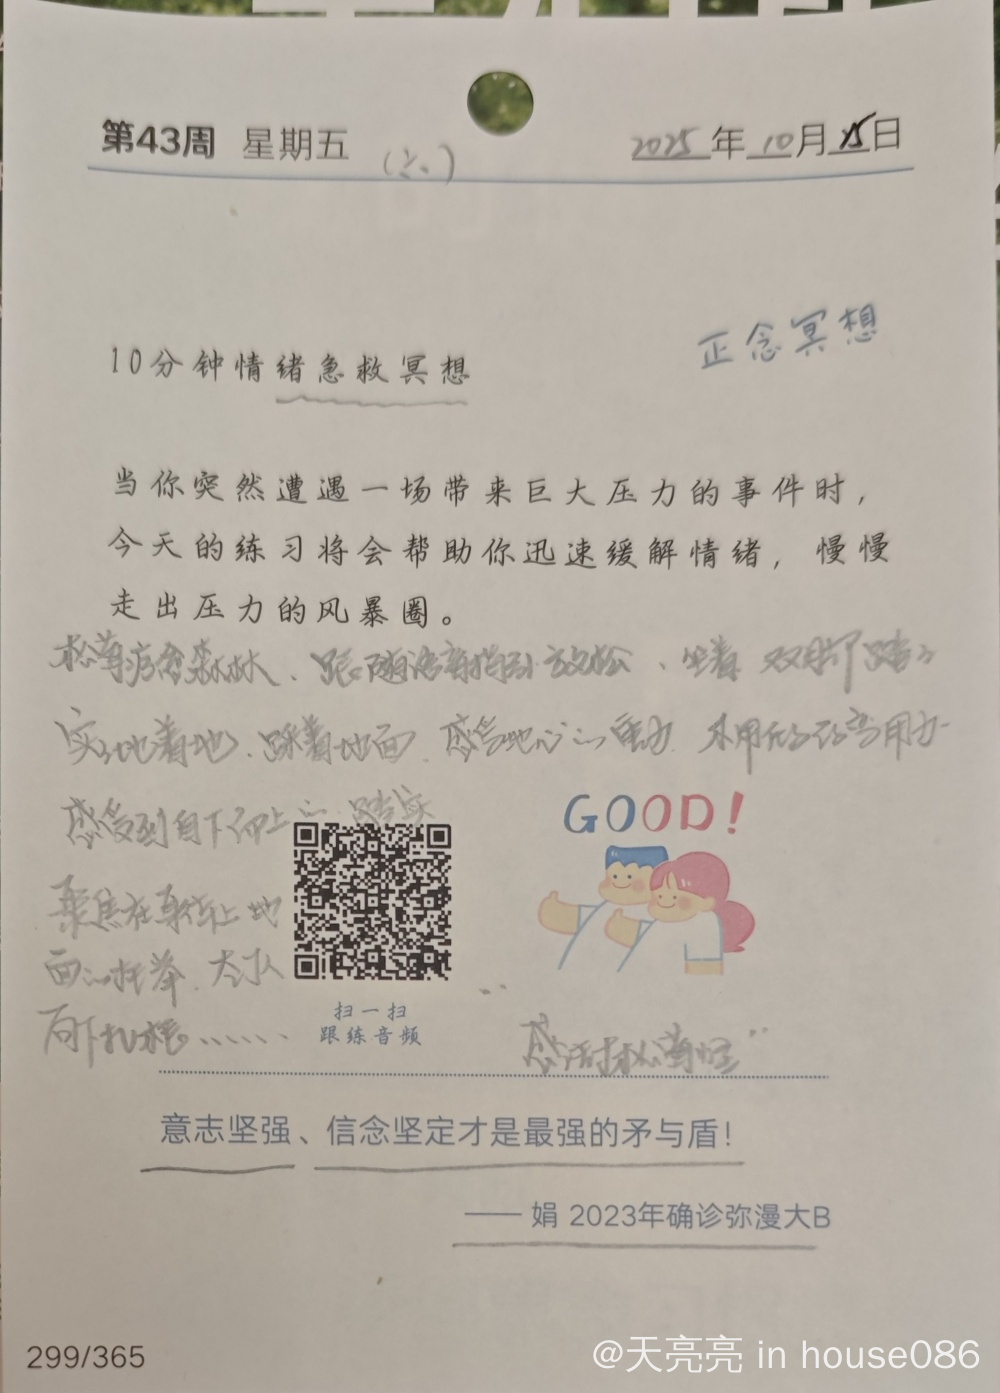 第43周 星期五 (六) 2025年10月25日
正念冥想
10分钟情绪急救冥想
当你突然遭遇一场带来巨大压力的事件时，
今天的练习将会帮助你迅速缓解情绪，慢慢
走出压力的风暴圈。
松萆疗愈森林、跟随语音指引放松、坐着 双脚踏
实地着地、踩着地面、感受地心的重力、不用
感受到自下而上的踏实
GOOD!
聚焦在身体上 地
面的托举、大
向下扎根……
扫一扫
跟练音频
意志坚强、信念坚定才是最强的矛与盾！
—— 娟 2023年确诊弥漫大B
299/365
@天亮亮 in house086